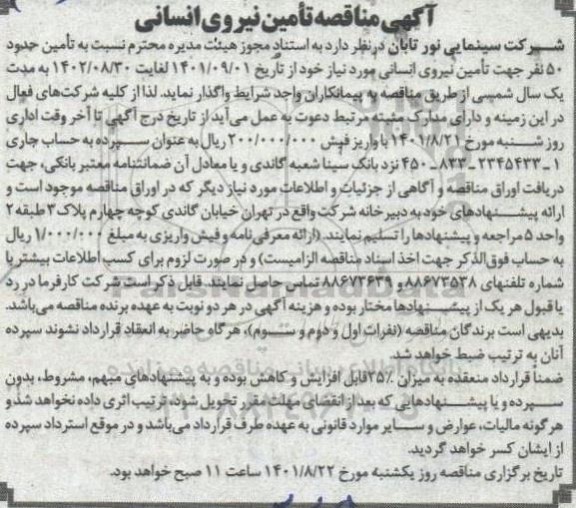 آگهی مناقصه تأمین نیروی انسانی
شرکت سینمایی نور تابان در نظر دارد به استناد مجوز هیئت مدیره محترم نسبت به تأمین حدود
۵۰ نفر جهت تأمین نیروی انسانی مورد نیاز خود از تاریخ ۱۴۰۱/۰۹/۰۱ لغایت ۱۴۰۲/۰۸/۳۰ به مدت
یک سال شمسی از طریق مناقصه به پیمانکاران واجد شرایط واگذار نماید. لذا از کلیه شرکت‌های فعال
در این زمینه و دارای مدارک مثبته مرتبط دعوت به عمل می‌آید از تاریخ درج آگهی تا آخر وقت اداری
روز شنبه مورخ ۱۴۰۱/۸/۲۱ با واریز فیش ۲۰۰/۰۰۰/۰۰۰ ریال به عنوان سپرده به حساب جاری
۱-۲۳۴۵۴۳۳-۸۳۳-۴۵۰ نزد بانک سینا شعبه گاندی و یا معادل آن ضمانتنامه معتبر بانکی، جهت
دریافت اوراق مناقصه و آگاهی از جزئیات و اطلاعات مورد نیاز دیگر که در اوراق مناقصه موجود است و
ارائه پیشنهادهای خود به دبیرخانه شرکت واقع در تهران خیابان گاندی کوچه چهارم پلاک ۳ طبقه ۲
واحد ۵ مراجعه و پیشنهادها را تسلیم نمایند. (ارائه معرفی نامه و فیش واریزی به مبلغ ۱/۰۰۰/۰۰۰ ریال
به حساب فوق‌الذکر جهت اخذ اسناد مناقصه الزامیست) و در صورت لزوم برای کسب اطلاعات بیشتر با
شماره تلفنهای ۸۸۶۷۳۵۳۸ و ۸۸۶۷۳۶۳۹ تماس حاصل نمایند. قابل ذکر است شرکت کارفرما در رد
یا قبول هر یک از پیشنهادها مختار بوده و هزینه آگهی در هر دو نوبت به عهده برنده مناقصه می‌باشد.
بدیهی است برندگان مناقصه (نفرات اول و دوم و سوم)، هرگاه حاضر به انعقاد قرارداد نشوند سپرده
آنان به ترتیب ضبط خواهد شد.
ضمناً قرارداد منعقده به میزان ۲۵٪ قابل افزایش و کاهش بوده و به پیشنهادهای مبهم، مشروط، بدون
سپرده و یا پیشنهادهایی که بعد از انقضای مهلت مقرر تحویل شود، ترتیب اثری داده نخواهد شد و
هرگونه مالیات، عوارض و سایر موارد قانونی به عهده طرف قرارداد می‌باشد و در موقع استرداد سپرده
از ایشان کسر خواهد گردید.
تاریخ برگزاری مناقصه روز یکشنبه مورخ ۱۴۰۱/۸/۲۲ ساعت ۱۱ صبح خواهد بود.